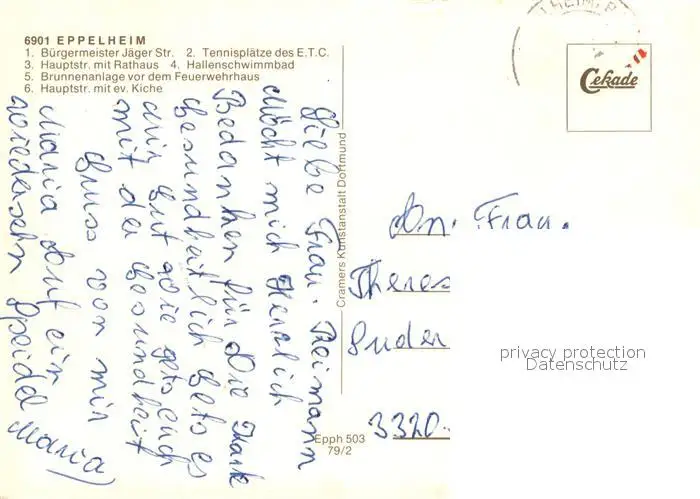 6901 EPPELHEIM
1. Bürgermeister Jäger Str. 2. Tennisplätze des E.T.C.
3. Hauptstr. mit Rathaus 4. Hallenschwimmbad
5. Brunnenanlage vor dem Feuerwehrhaus
6. Hauptstr. mit ev. Kiche
Liebe Frau. Reimann
Möcht mich Herzlich
Bedanken für Die Karte
Gesundheitlich gets es
mir gut wie gets euch
mit der Gesundheit
Gruss von mir
Maria Auf ein
wiedersehn Speidel
Maria
Cramers Kunstanstalt Dortmund
Epph 503
79/2
Cekade
An. Frau.
Theres
Suder
3320.
privacy protection
Datenschutz